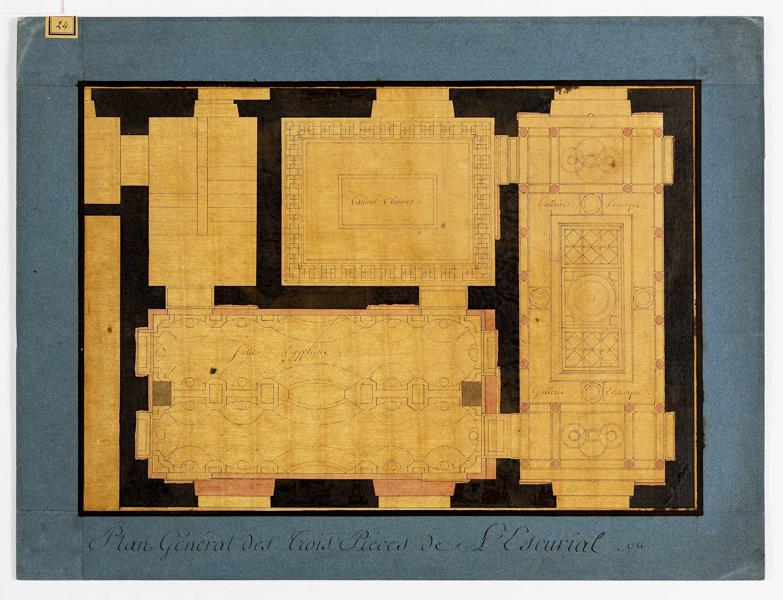 24.
Cabinet Chinois.
Gallerie Etrusque.
Salle Egyptiene
Gallerie Etrusque.
Plan Général des Trois Pièces de L'Escurial.